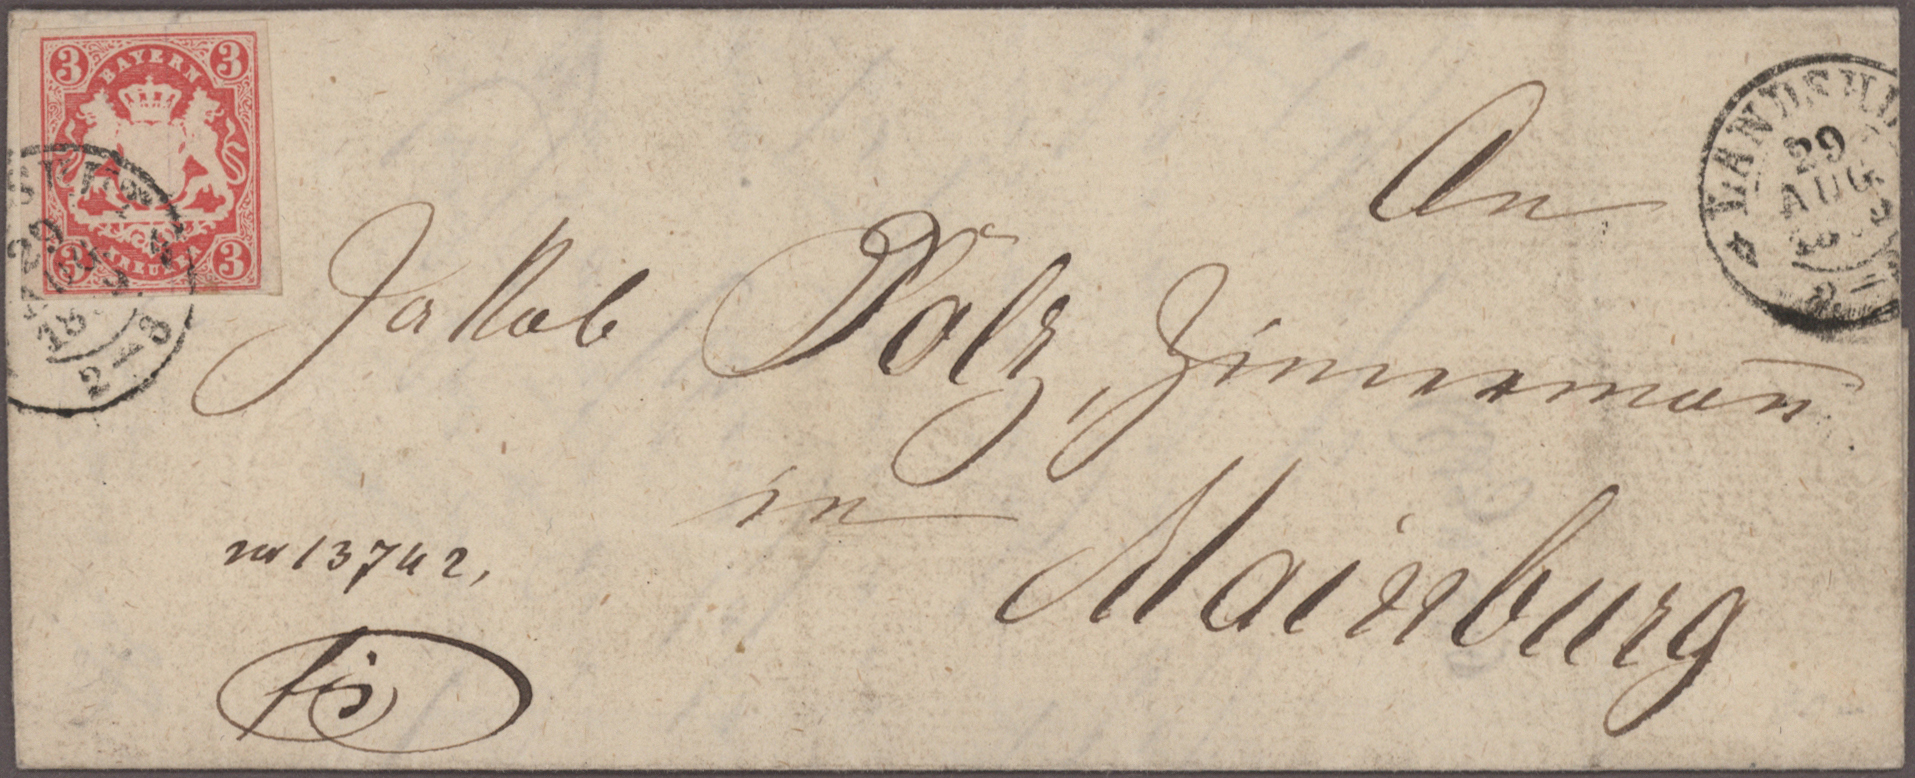 3 BAYERN 3
3 KREUZER 3
29
2 – 3
LANDSHU
29
AUG
An
Jakob Pölz, Zimmerman
in
Mainburg
nr 13742,